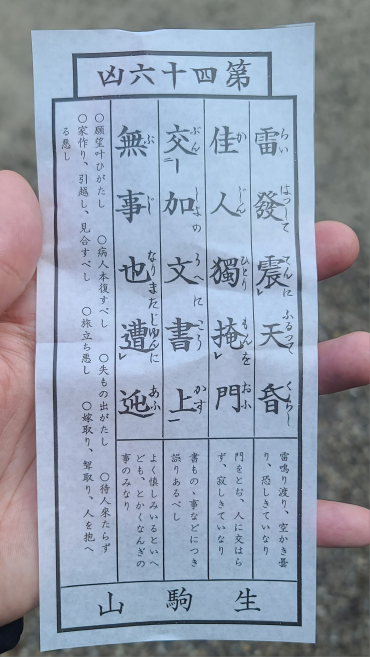 第四十六凶
雷發震天昏
らい はつして てんに ふるつて くらし
雷鳴り渡り、空かき曇
り、恐しきていなり
佳人獨掩門
か じん ひとり もんを おふ
門をとぢ、人に交はら
ず、寂しきていなり
交加文書上
ぶん しよの うへに こう かす
書もの、事などにつき
誤りあるべし
無事也遭迍
ぶ じ なりまたじゆんに あふ
よく慎しみいるといへ
ども、とかくなんぎの
事のみなり
〇願望叶ひがたし 〇病人本復すべし 〇失もの出がたし 〇待人來たらず
〇家作り、引越し、見合すべし 〇旅立ち悪し 〇嫁取り、聟取り、人を抱へ
る悪し
生駒山